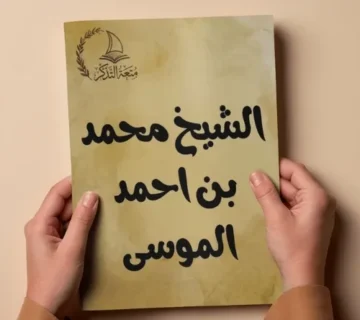 متعة التذكر
الشيخ محمد
بن احمد
الموسى